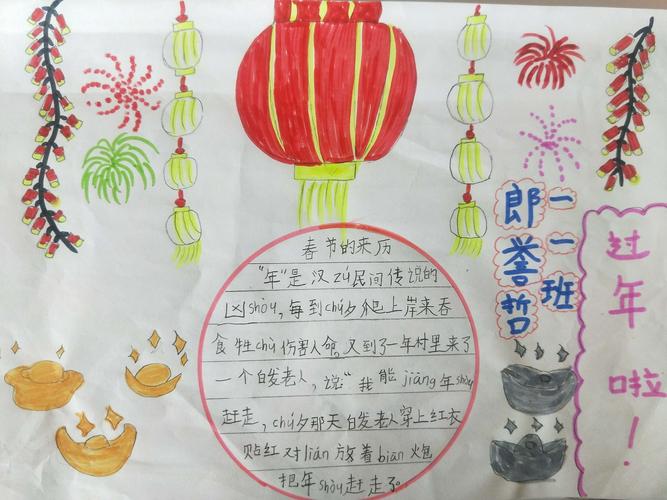 春节的来历
"年"是汉zú民间传说的
凶shòu,每到chú夕他上岸来吞
食牲chù伤害人命,又到了一年村里来了
一个白发老人,说:"我能jiāng年shòu
赶走,chú夕那天白发老人穿上红衣
贴红对lián放着biān炮
把年shòu赶走了。
一一班
郎誉哲
过年啦!